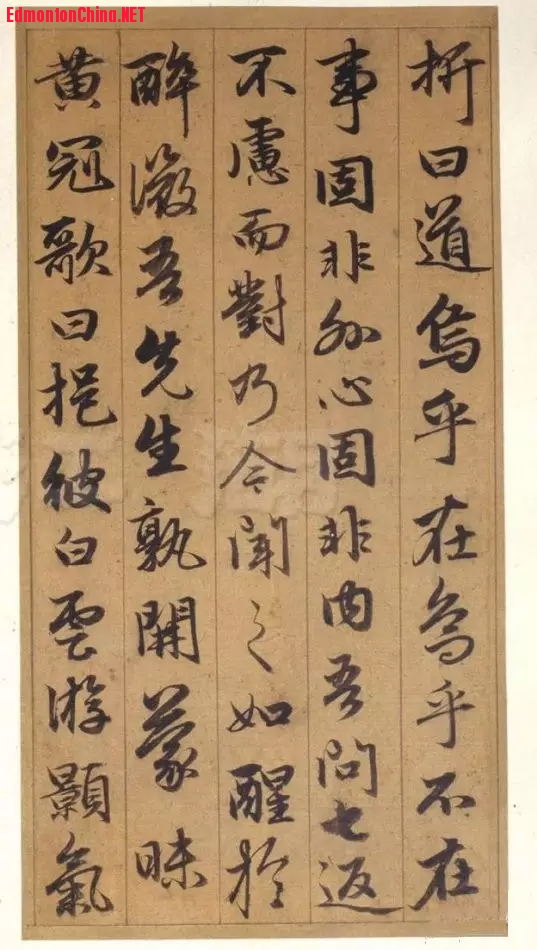 EdmontonChina.NET
析曰道烏乎在烏乎不在
事固非外心固非内吾問七返
不慮而對乃今聞之如醒於
醉微吾先生孰開蒙昧
黄冠歌曰挹彼白雲游顥氣